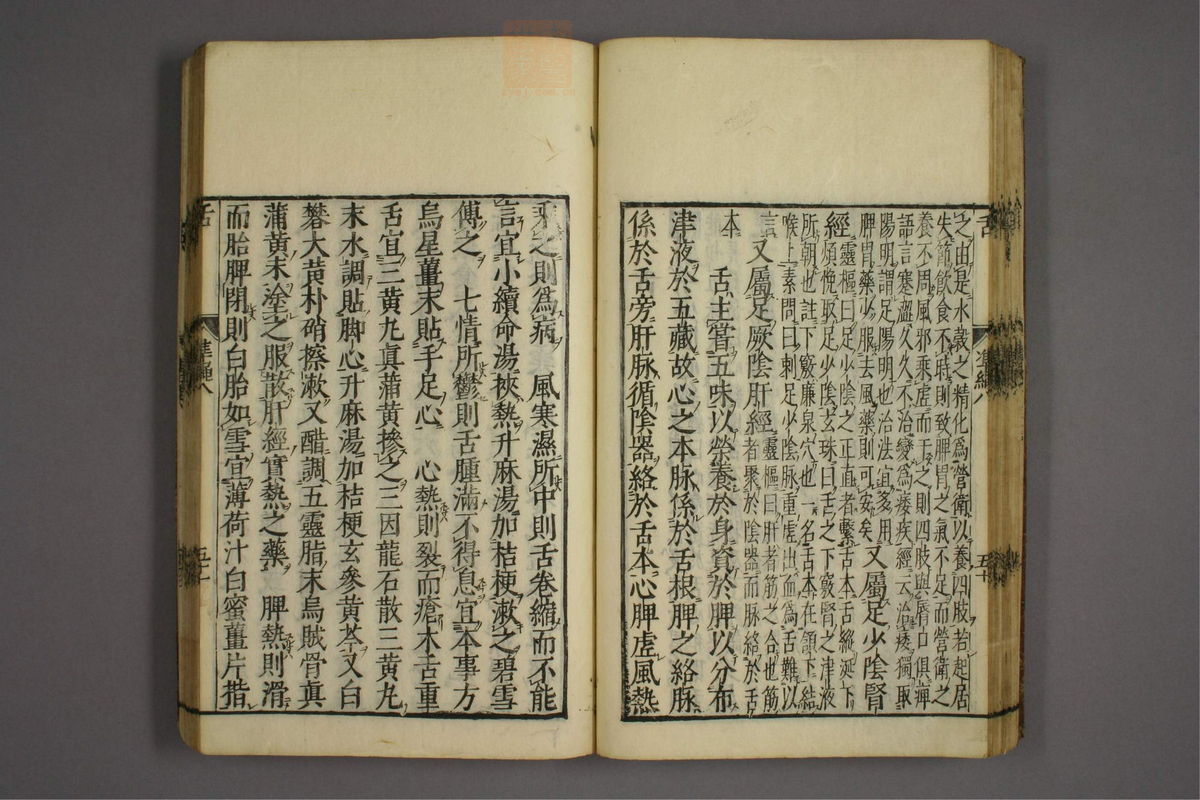 之由是水穀之精化為營衛以養四肢若起居
失節飲食不時則致脾胃之氣不足而營衛之
養不周風邪乘虛而干之則四肢與唇口俱痺
語言蹇澀久久不治變為痿疾經云治痿獨取
陽明謂足陽明也治法宜多用
脾胃藥少服去風藥則可安矣又屬足少陰腎
經靈樞曰足少陰之正直者繫舌本舌縱涎下
煩悗取足少陰玄珠曰舌之下竅腎之津液
所朝也註下竅廉泉穴也一名舌本在頷下結
喉上素問曰刺足少陰脉重虛出血為舌難以
言又屬足厥陰肝經靈樞曰肝者筋之合也筋
者聚於陰器而脉絡於舌
本
舌主嘗五味以榮養於身資於脾以分布
津液於五藏故心之本脉係於舌根脾之絡脉
係於舌旁肝脉循陰器絡於舌本心脾虛風熱
舌
準繩八
五十
乘之則為病 風寒濕所中則舌卷縮而不能
言宜小續命湯挾熱升麻湯加桔梗漱之碧雪
傅之 七情所鬱則舌腫滿不得息宜本事方
烏星薑末貼手足心 心熱則裂而瘡木舌重
舌宜三黃丸真蒲黃摻之三因龍石散三黃丸
末水調貼脚心升麻湯加桔梗玄參黃芩又白
礬大黄朴硝擦漱又醋調五靈脂末烏賊骨真
蒲黃末塗之服散肝經實熱之藥 脾熱則滑
而胎脾閉則白胎如雪宜薄荷汁白蜜薑片揩
舌
準繩八
五十一